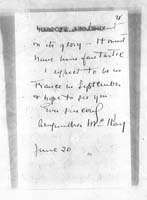 in its glory - It must
have been fantastic
I expect to be in
France in September
& hope to see you.
Ever sincerely
June 20